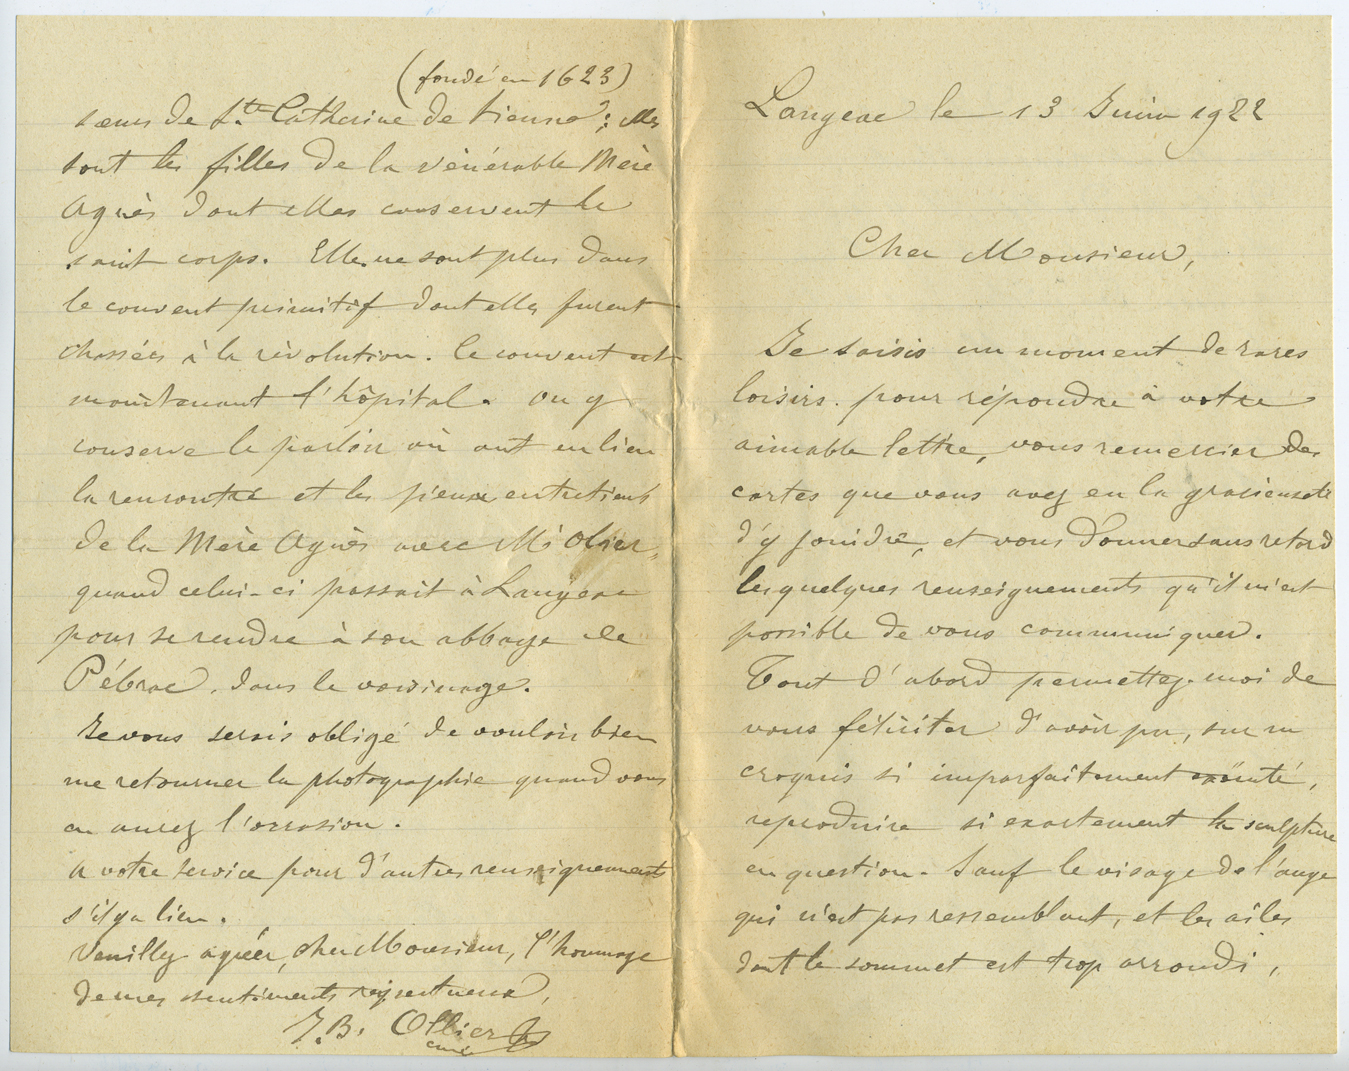 Langeac le 13 Juin 1922
Cher Monsieur,
Je saisis un moment de rares
loisirs pour répondre à votre
aimable lettre, vous remercier des
cartes que vous avez eu la gracieuseté
d'y joindre, et vous donner sans retard
les quelques renseignements qu'il m'est
possible de vous communiquer.
Tout d'abord permettez-moi de
vous féliciter d'avoir pu, sur un
croquis si imparfaitement
reproduire si exactement la sculpture
en question. Sauf le visage de l'ange
qui n'est pas ressemblant, et les ailes
dont le sommet est trop arrondi,
(fondé en 1623)
sœurs de Ste Catherine de Sienne ; elles
sont les filles de la vénérable Mère
Agnès dont elles conservent le
saint corps. Elle ne sont plus dans
le couvent primitif dont elles furent
chassées à la révolution. Ce couvent est
maintenant l'hôpital. On y
conserve le parloir où ont eu lieu
la rencontre et les pieux entretiens
de la Mère Agnès avec Mr Olier,
quand celui-ci passait à Langeac
pour se rendre à son abbaye de
Pébrac, dans le voisinage.
Je vous serais obligé de vouloir bien
me retourner la photographie quand vous
en aurez l'occasion.
A votre service pour d'autres renseignements
s'il y a lieu.
Veuillez agréer, cher Monsieur, l'hommage
de mes sentiments respectueux,
J.B. Ollier
curé